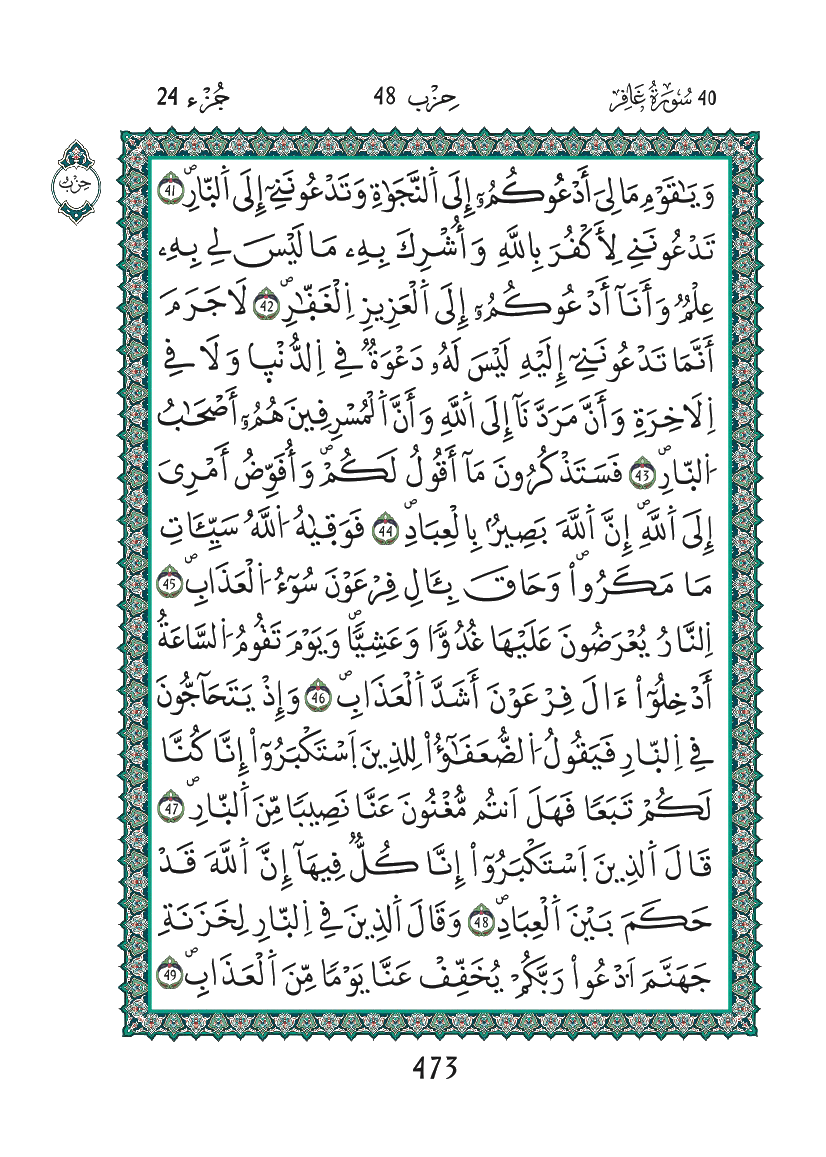 40 سُورَةُ غَافِر
حِزْب 48
جُزْء 24
حِزْب
وَيَٰقَوْمِ مَا لِيَ أَدْعُوكُمُۥٓ إِلَى اَ۬لنَّجَوٰةِ وَتَدْعُونَنِےٓ إِلَى اَ۬لنّ۪ارِۖ 41
تَدْعُونَنِے لِأَكْفُرَ بِاللَّهِ وَأُشْرِكَ بِهِۦ مَا لَيْسَ لِے بِهِۦ
عِلْمٌ وَأَنَآ أَدْعُوكُمُۥٓ إِلَى اَ۬لْعَزِيزِ اِ۬لْغَفّٰ۪رِۖ 42 لَا جَرَمَ
أَنَّمَا تَدْعُونَنِےٓ إِلَيْهِ لَيْسَ لَهُۥ دَعْوَةٌ فِے اِ۬لدُّنْي۪ا وَلَا فِے
اِ۬لَاخِرَةِ وَأَنَّ مَرَدَّنَآ إِلَى اَ۬للَّهِ وَأَنَّ اَ۬لْمُسْرِفِينَ هُمُۥٓ أَصْحَٰبُ
اُ۬لنّ۪ارِۖ 43 فَسَتَذْكُرُونَ مَآ أَقُولُ لَكُمْۖ وَأُفَوِّضُ أَمْرِيَ
إِلَى اَ۬للَّهِۖ إِنَّ اَ۬للَّهَ بَصِيرُۢ بِالْعِبَادِۖ 44 فَوَق۪يٰهُ اُ۬للَّهُ سَيِّـَٔاتِ
مَا مَكَرُواْۖ وَحَاقَ بِـَٔالِ فِرْعَوْنَ سُوٓءُ اُ۬لْعَذَابِۖ 45
اِ۬لنَّارُ يُعْرَضُونَ عَلَيْهَا غُدُوّاٗ وَعَشِيّاٗۖ وَيَوْمَ تَقُومُ اُ۬لسَّاعَةُ
أَدْخِلُوٓاْ ءَالَ فِرْعَوْنَ أَشَدَّ اَ۬لْعَذَابِۖ 46 وَإِذْ يَتَحَآجُّونَ
فِے اِ۬لنّ۪ارِ فَيَقُولُ اُ۬لضُّعَفَٰٓؤُاْ لِلذِينَ اَ۪سْتَكْبَرُوٓاْ إِنَّا كُنَّا
لَكُمْ تَبَعاٗ فَهَلَ اَنتُم مُّغْنُونَ عَنَّا نَصِيباٗ مِّنَ اَ۬لنّ۪ارِۖ 47
قَالَ اَ۬لذِينَ اَ۪سْتَكْبَرُوٓاْ إِنَّا كُلّٞ فِيهَآ إِنَّ اَ۬للَّهَ قَدْ
حَكَمَ بَيْنَ اَ۬لْعِبَادِۖ 48 وَقَالَ اَ۬لذِينَ فِے اِ۬لنّ۪ارِ لِخَزَنَةِ
جَهَنَّمَ اَ۟دْعُواْ رَبَّكُمْ يُخَفِّفْ عَنَّا يَوْماٗ مِّنَ اَ۬لْعَذَابِۖ 49
473